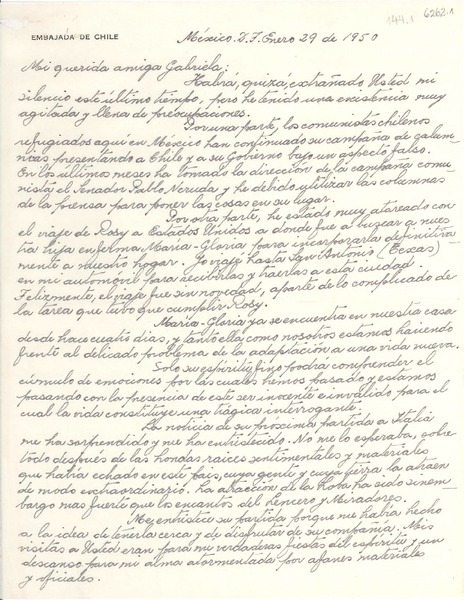 144.1 6262.1
EMBAJADA DE CHILE
México. D.F. Enero 29 de 1950
Mi querida amiga Gabriela:
Habrá, quizá, extrañado Usted mi
silencio este último tiempo, pero he tenido una existencia muy
agitada y llena de preocupaciones.
Por una parte, los comunistas chilenos
refugiados aquí en México han continuado su campaña de calum-
nias presentando a Chile y a su Gobierno bajo un aspecto falso.
En los últimos meses ha tomado la dirección de la campaña comu-
nista el Senador Pablo Neruda y he debido utilizar las columnas
de la prensa para poner las cosas en su lugar.
Por otra parte, he estado muy atareado con
el viaje de Rosy a Estados Unidos a donde fue a buscar a nues-
tra hija enferma Maria-Gloria para incorporarla definitiva-
mente a nuestro hogar. Yo viajé hasta San Antonio (Texas)
en mi automóvil para recibirlas y traerlas a esta ciudad.
Felizmente, el viaje fue sin novedad, aparte de lo complicado de
la tarea que tuvo que cumplir Rosy.
Maria-Gloria ya se encuentra en nuestra casa
desde hace cuatro días, y tanto ella como nosotros estamos haciendo
frente al delicado problema de la adaptación a una vida nueva.
Solo su espíritu fino podrá comprender el
cúmulo de emociones por las cuales hemos pasado y estamos
pasando con la presencia de este ser inocente e inválido para el
cual la vida constituye una trágica interrogante.
La noticia de su próxima partida a Italia
me ha sorprendido y me ha entristecido. No me lo esperaba, sobre
todo después de las hondas raíces sentimentales y materiales
que había echado en este país, cuya gente y cuya tierra la atraen
de modo extraordinario. La atracción de la Roba ha sido sinem-
bargo mas fuerte que los encantos del Lencero y Miradores.
Me entristece su partida porque me había hecho
a la idea de tenerla cerca y de disfrutar de su compañía. Mis
visitas a Usted eran para mí verdaderas fiestas del espíritu y un
descanso para mi alma atormentada por afanes materiales
y oficiales.